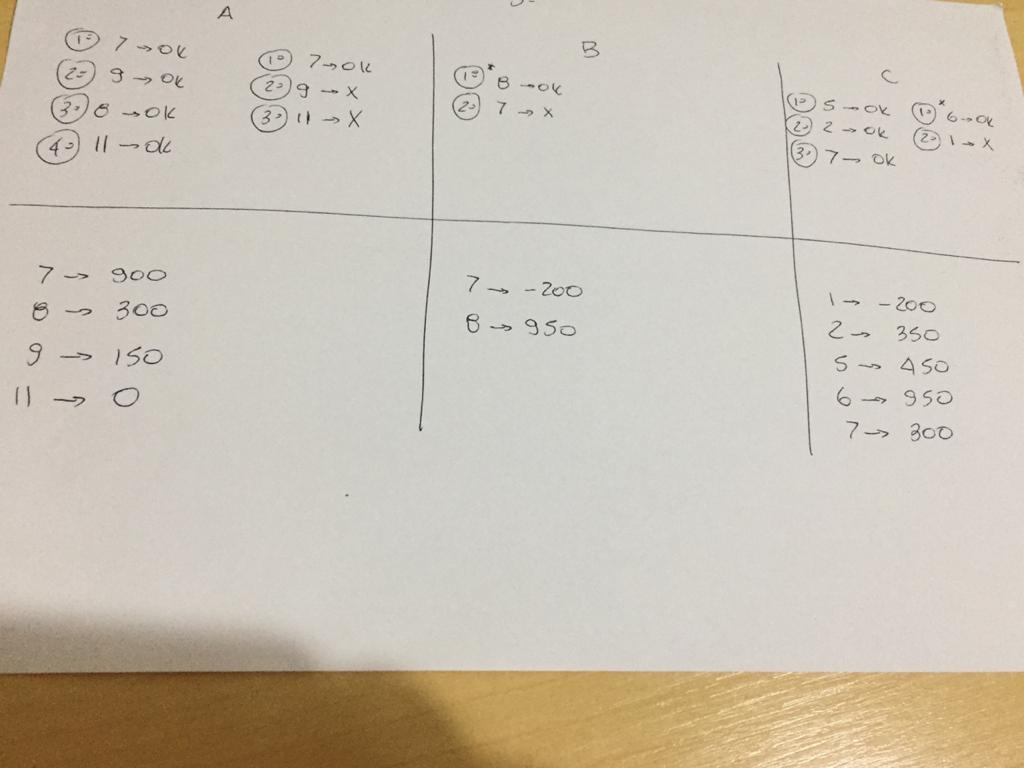 A
1º 7 → OK
2º 9 → OK
3º 8 → OK
4º 11 → OK
1º 7 → OK
2º 9 → X
3º 11 → X
B
1º* 8 → OK
2º 7 → X
C
1º 5 → OK
2º 2 → OK
3º 7 → OK
1º* 6 → OK
2º 1 → X
7 → 900
8 → 300
9 → 150
11 → 0
7 → -200
8 → 950
1 → -200
2 → 350
5 → 450
6 → 950
7 → 300